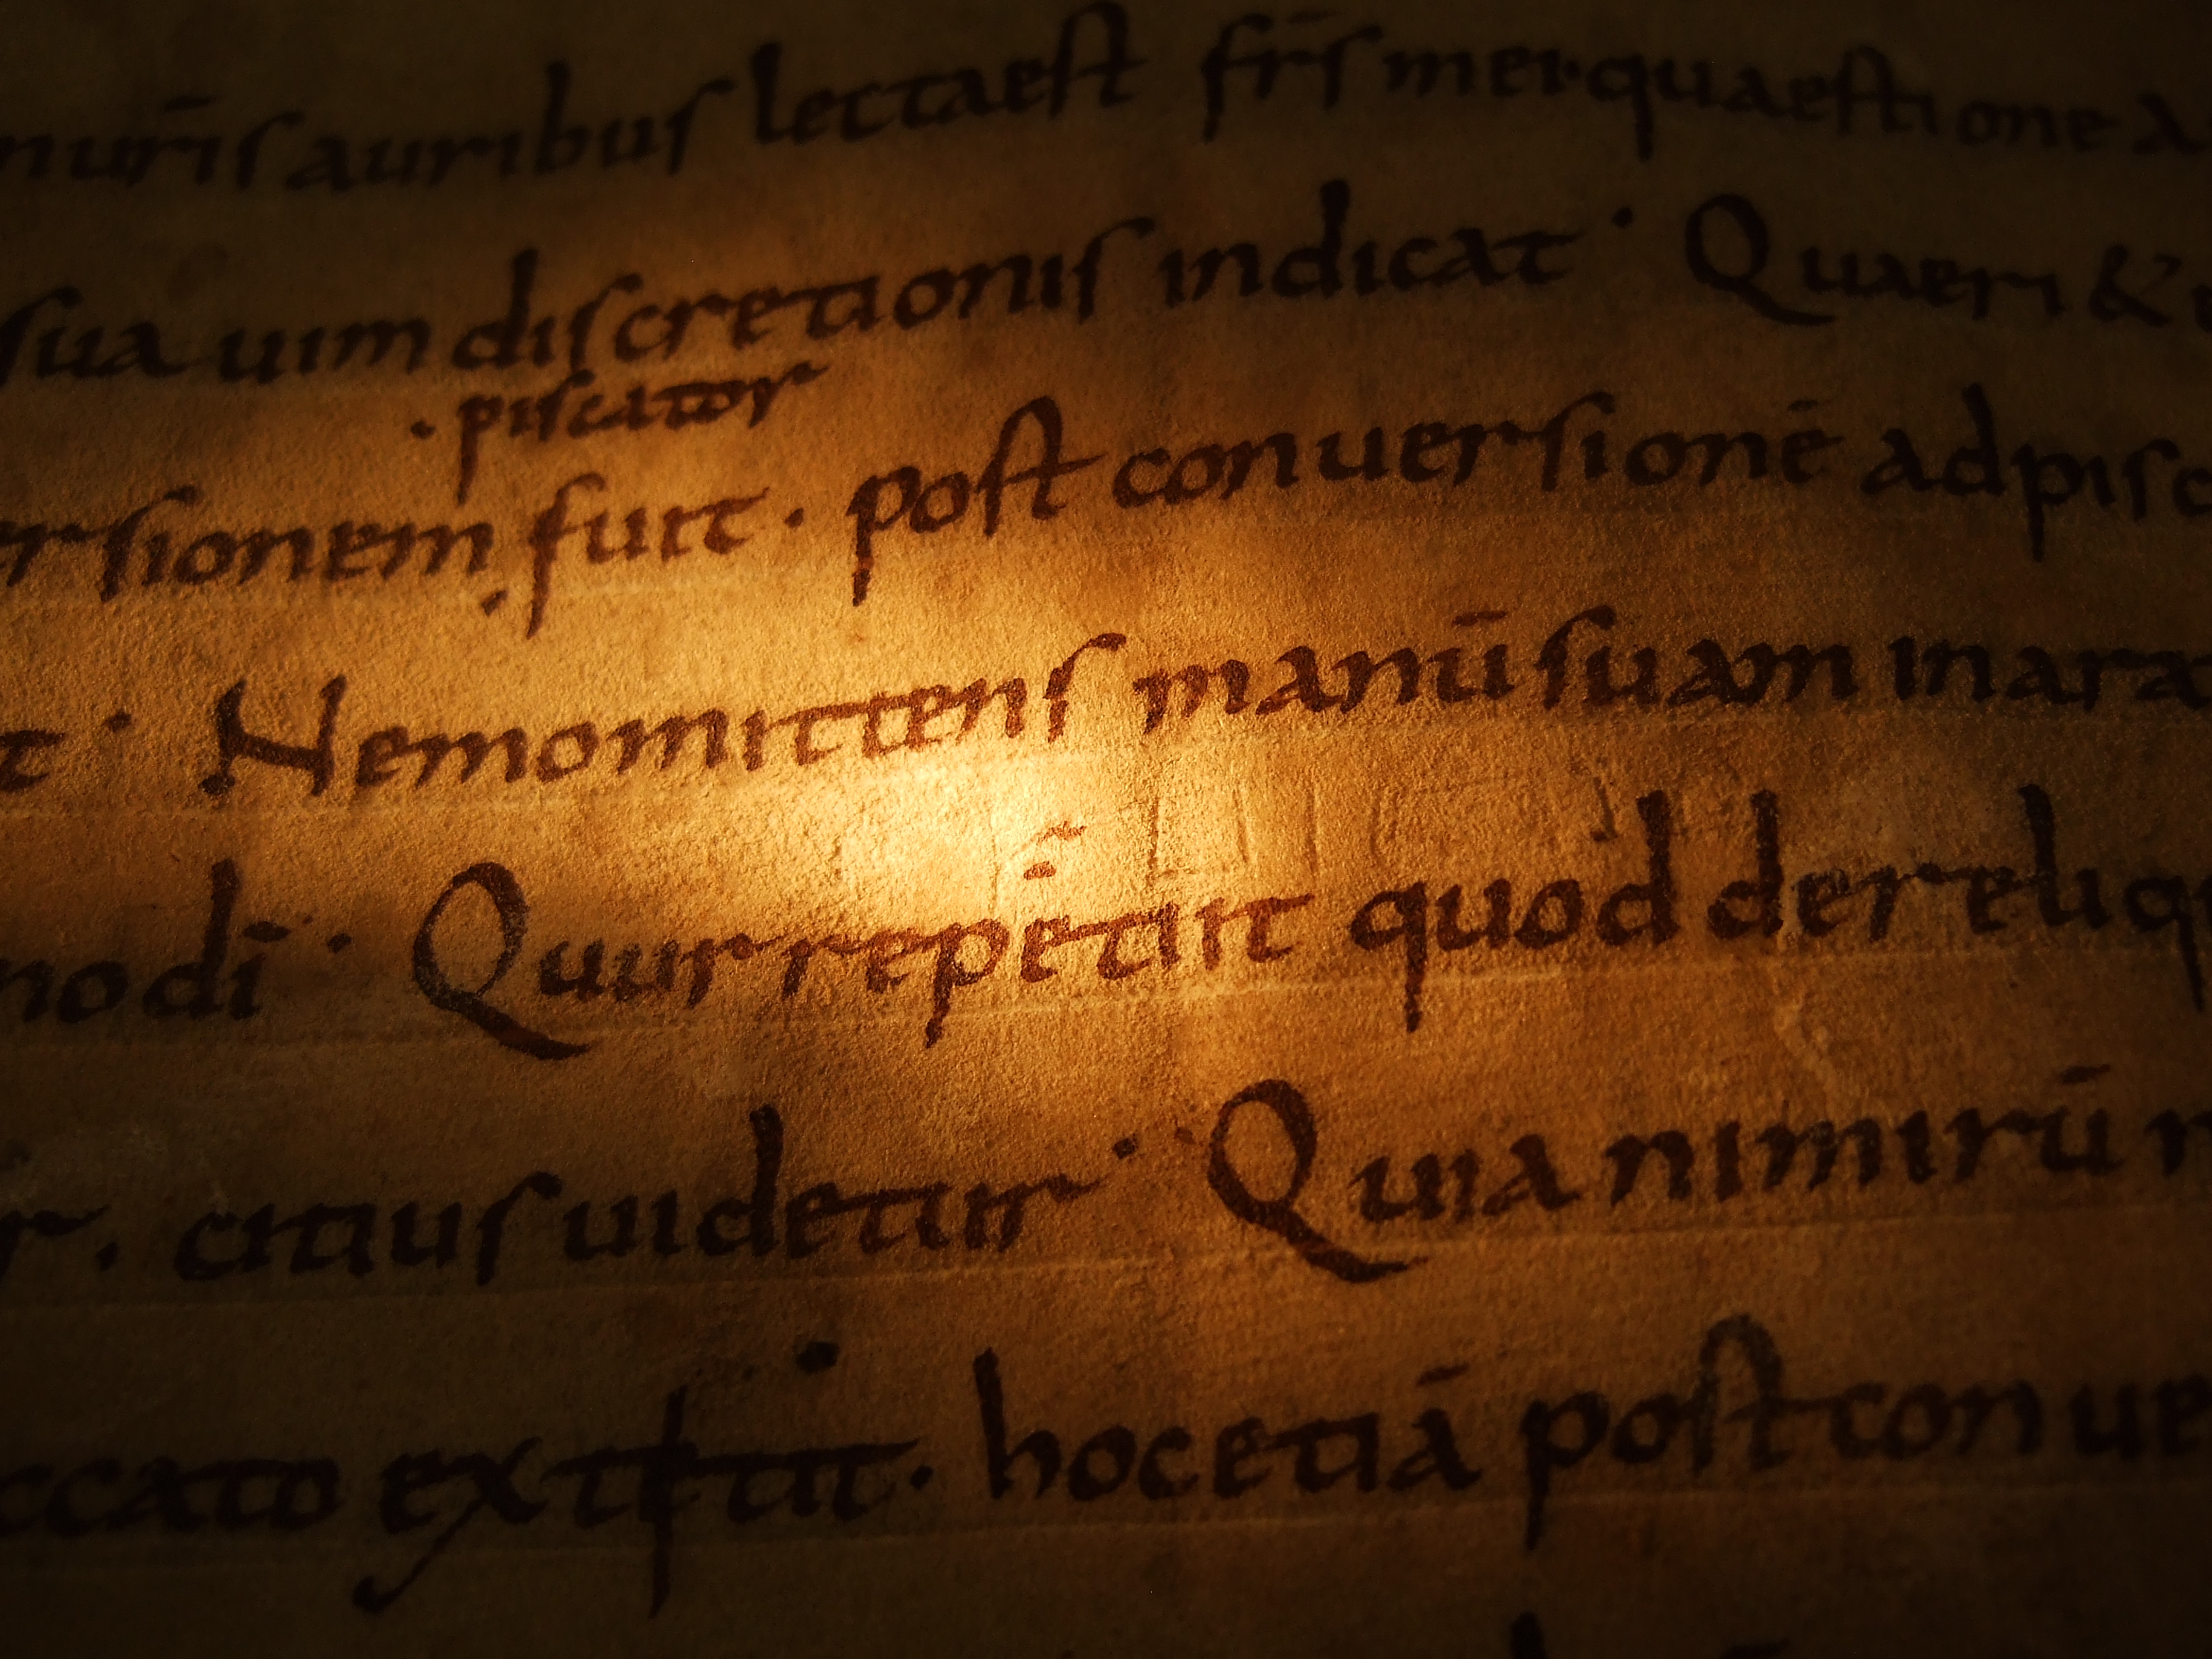 nurīs auribus lecta est frīs mei · quaestione a
sua uim discretionis indicat · Quaeri &
· piscator
ersionem · fuit · post conuersionē ad pisc
t · Nemo mittens manū suam in ara
modī · Quur repetiit quod dereliq
r · citius uidetur · Quia nimirū n
ccato extitit · hoc etiā post conue